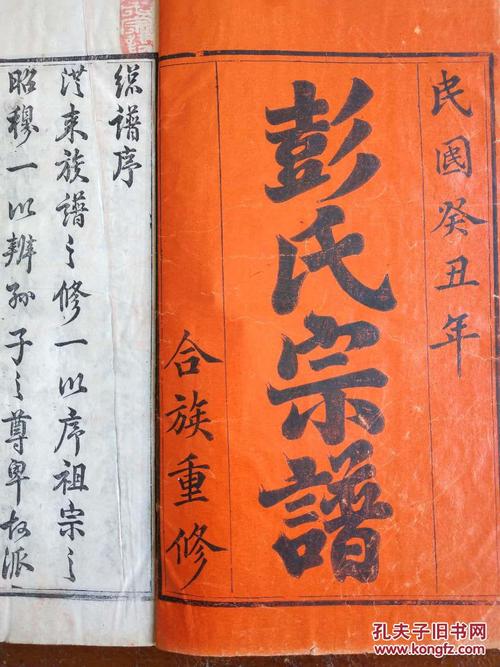 民國癸丑年
彭氏宗譜
合族重修
總譜序
從来族譜之修一以序祖宗之
昭穆一以辨孫子之尊卑故派
孔夫子旧书网
www.kongfz.com